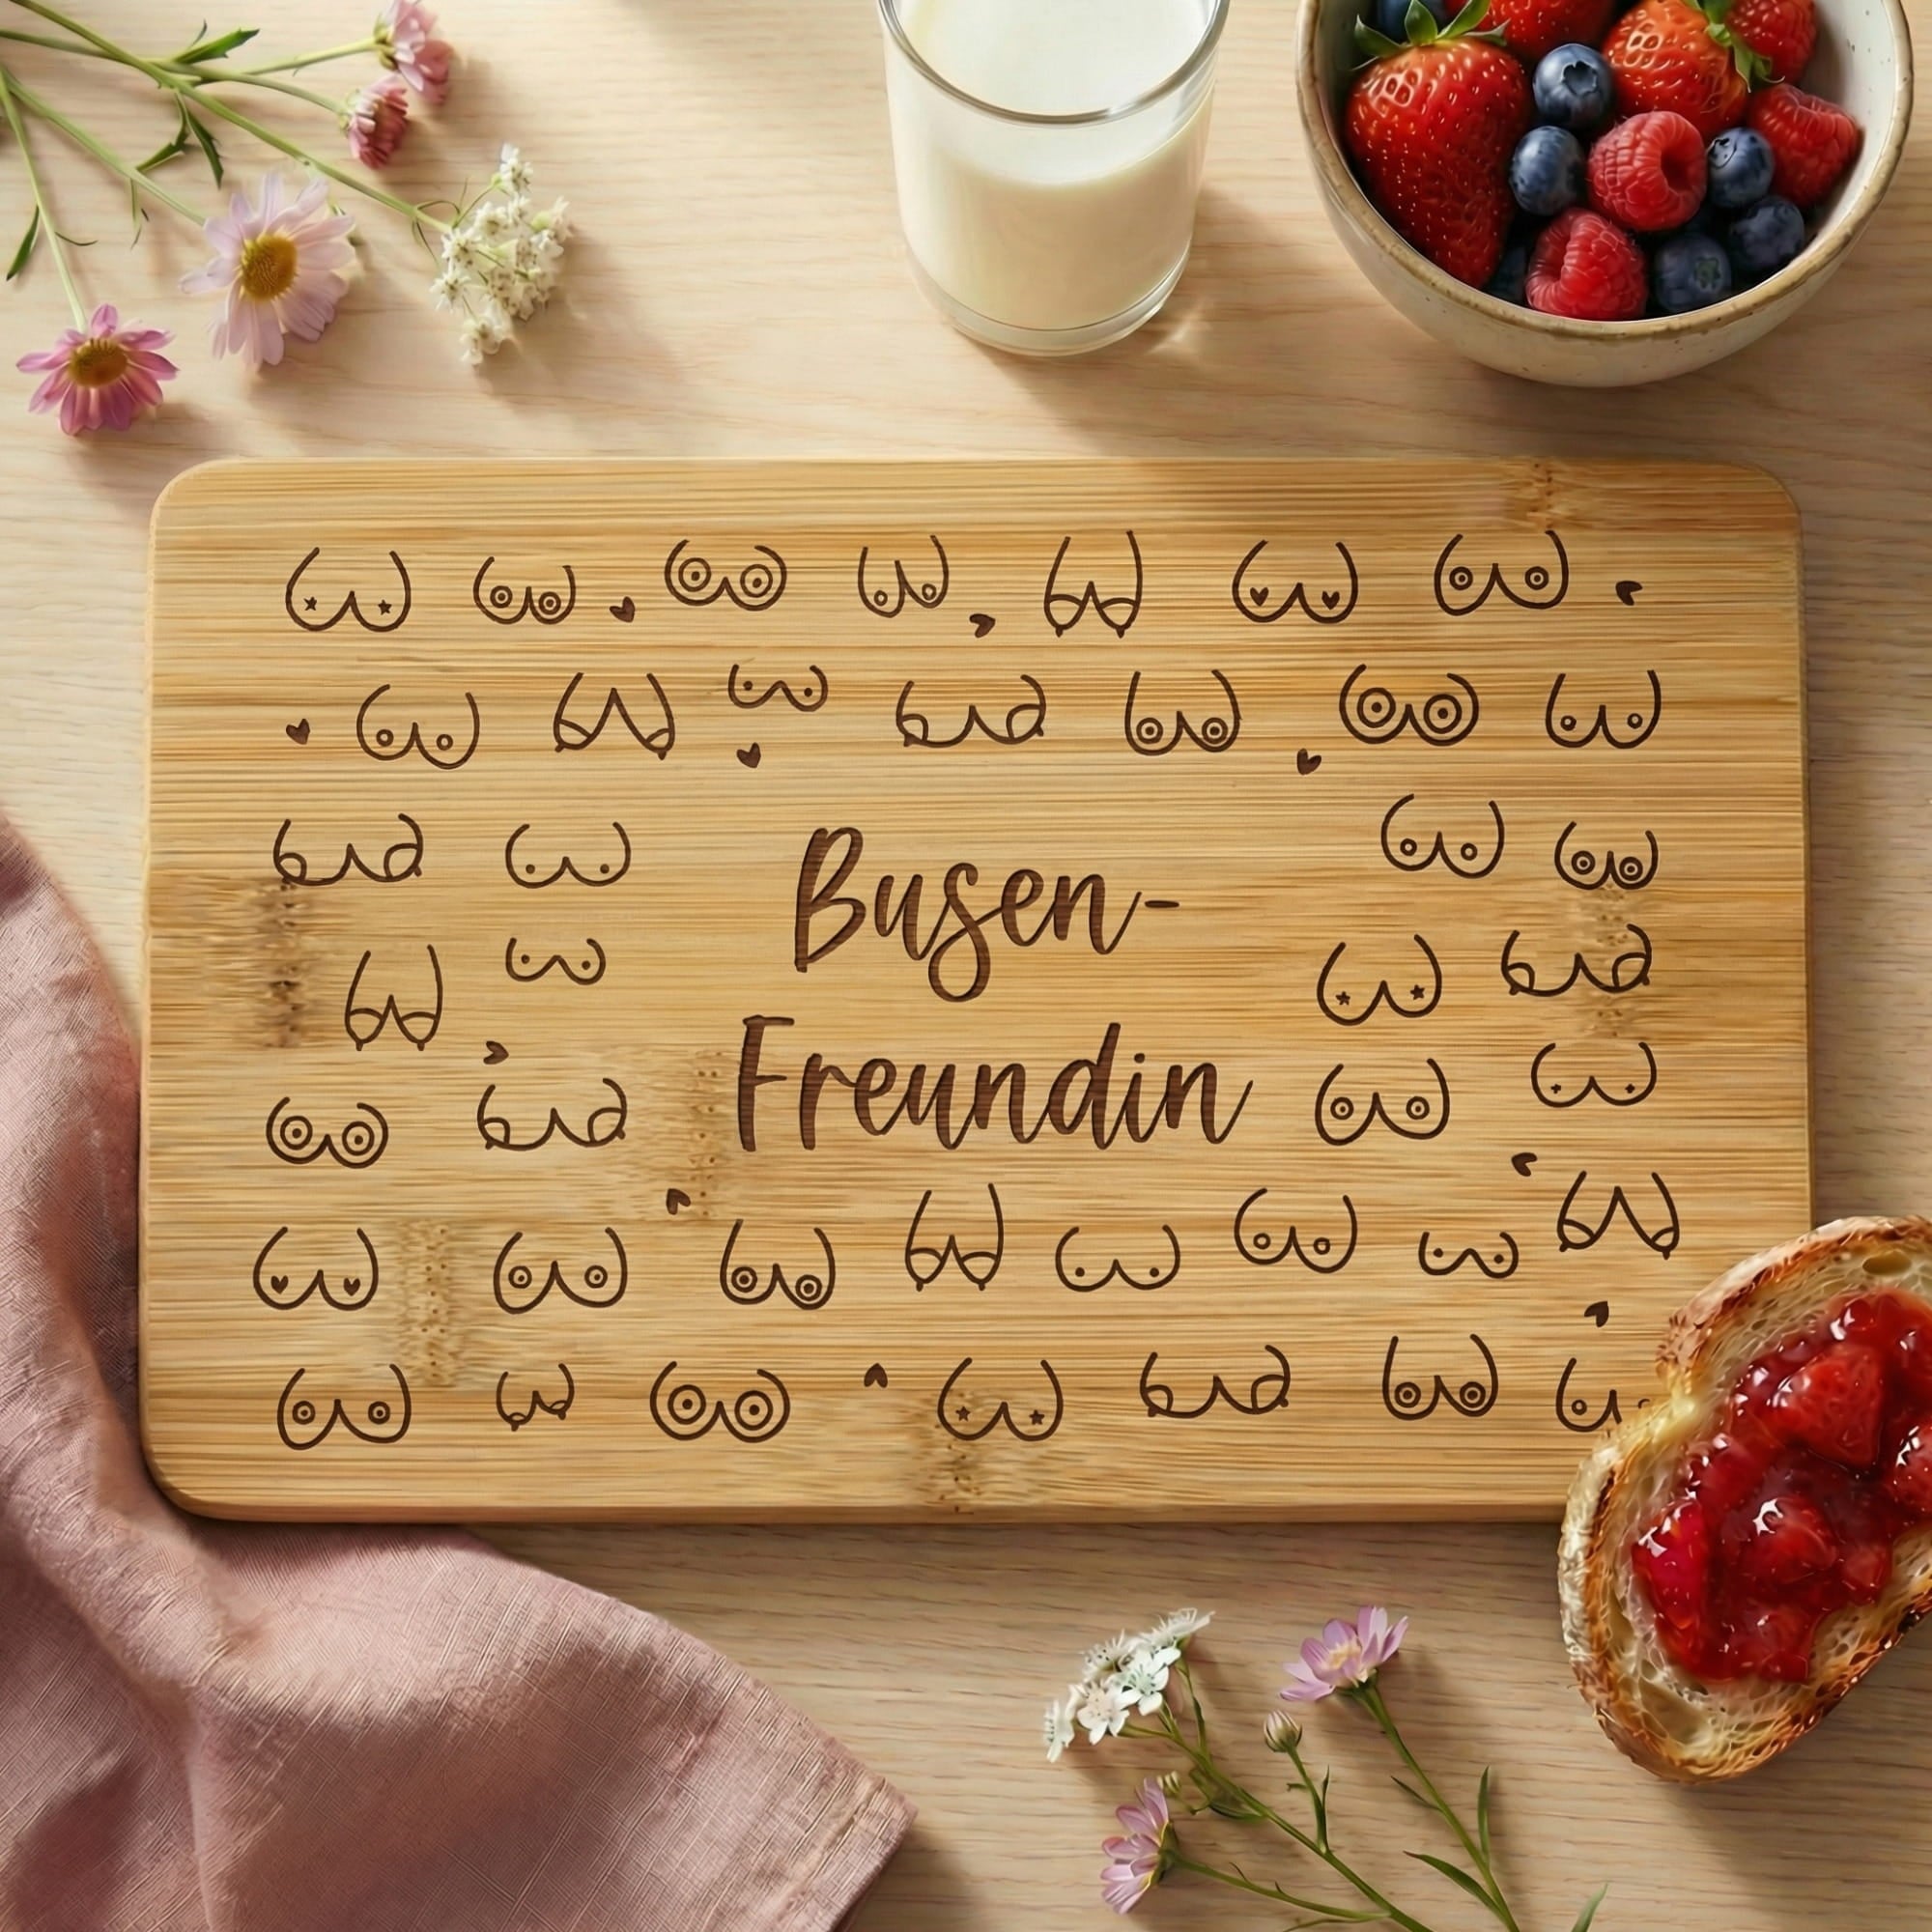 Busen-
Freundin